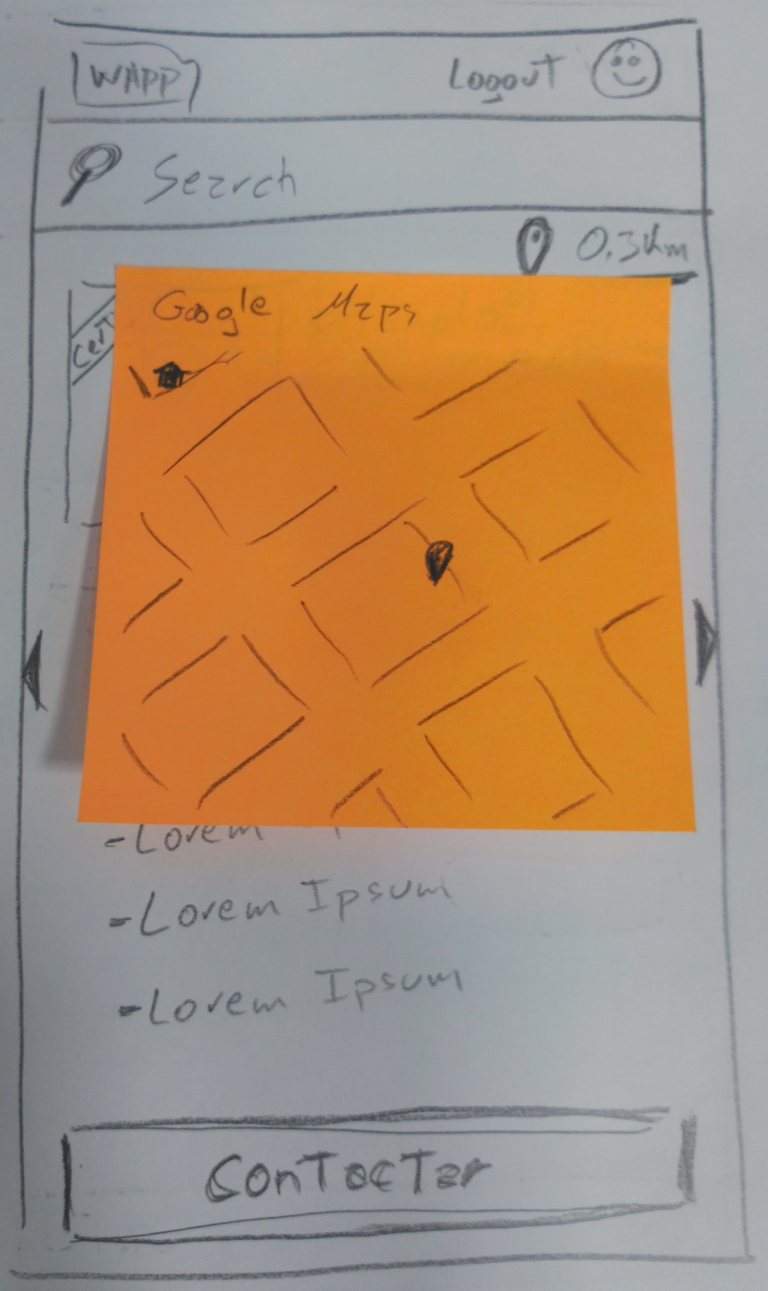 WAPP Logout
Search
0.3km
Google Maps
Cert
-Lorem
-Lorem Ipsum
-Lorem Ipsum
Contacter